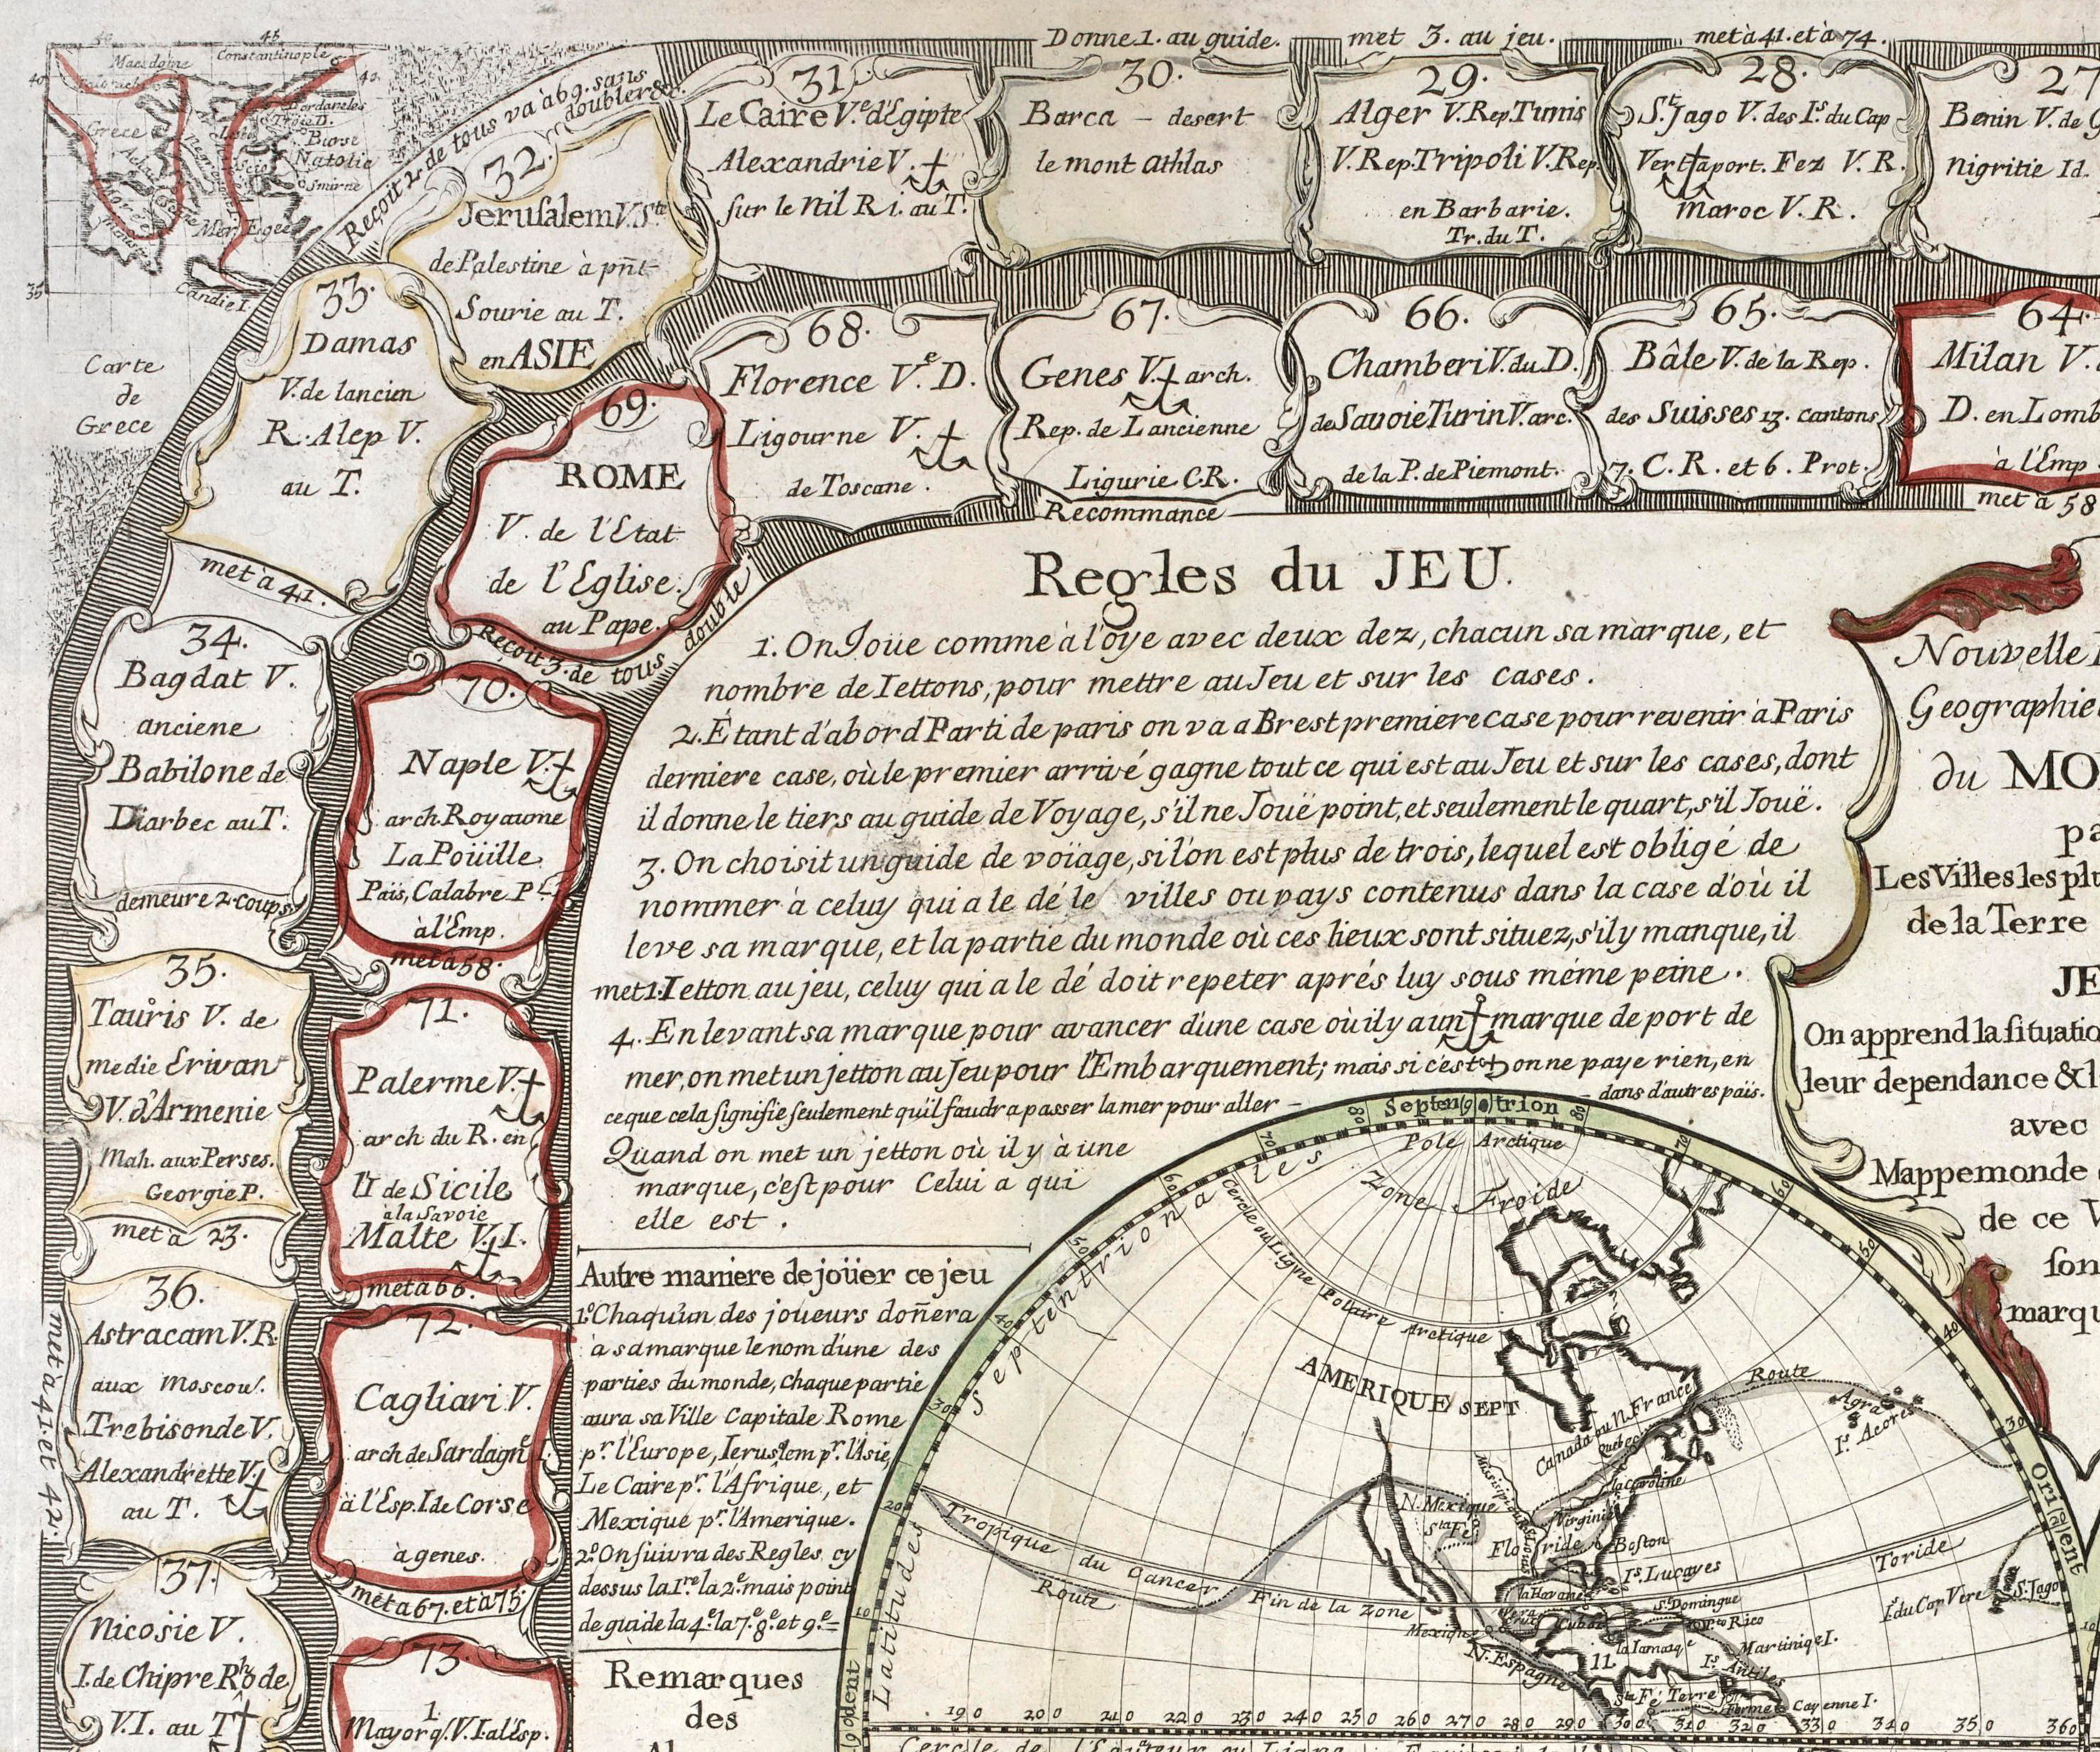 Donne 1. au guide.
met 3. au jeu.
met à 41. et à 74.
Reçoit 2. de tous va à 69. sans
doubler &c.
40
45
Macedoine
Constantinople
40
40
Dardaneles
Troie D.
Grece
Burse
Natolie
Scio
Smirne
Morée
Mer Egée
35
Candie I.
Carte
de
Grece
31.
Le Caire V.e d'Egipte
Alexandrie V.
sur le Nil R i. au T.
30.
Barca - desert
le mont athlas
29.
Alger V. Rep. Tunis
V. Rep. Tripoli V. Rep.
en Barbarie.
Tr. du T.
28.
St. Jago V. des Is. du Cap
Vert aport. Fez V. R.
Maroc V. R.
27
Benin V. de G
nigritie Id.
32.
Jerusalem V. Ste
de Palestine à pñt
Sourie au T.
en ASIE
33.
Damas
V. de lancien
R. Alep V.
au T.
met à 41.
34.
Bagdat V.
anciene
Babilone de
Diarbec au T.
demeure 2 coups
35.
Tauris V. de
medie Erivan
V. d'Armenie
Mah. aux Perses.
Georgie P.
met à 23.
36.
Astracam V. R.
aux Moscou.
Trebisonde V.
Alexandrette V.
au T.
met à 41. et 42.
37.
Nicosie V.
I. de Chipre Rhode
V. I. au T
68.
Florence V.e D.
Ligourne V.
de Toscane.
67.
Genes V. arch.
Rep. de Lancienne
Ligurie C. R.
Recommance
66.
Chamberi V. du D.
de Savoie Turin V. arc.
de la P. de Piemont.
65.
Bâle V. de la Rep.
des Suisses 13. cantons
7. C. R. et 6. Prot.
64.
Milan V.
D. en Lomb
à l'Emp
met à 58
69.
ROME
V. de l'Etat
de l'Eglise.
au Pape.
Reçoit 3. de tous double
70.
Naple V.
arch Royaume
La Poüille
Païs, Calabre P.
à l'Emp.
met à 58.
71.
Palerme V.
arch du R. en
l'I de Sicile
a la Savoie
Malte V. I.
met à 66.
72.
Cagliari V.
arch de Sardagne I.
à l'Esp. I de Corse
à genes.
met à 67. et à 75
73.
1
Mayorq. V. I. al'Esp.
Regles du JEU.
1. On Joüe comme à l'oye avec deux dez, chacun sa marque, et
nombre de Iettons, pour mettre au Jeu et sur les cases.
2. Étant d'abord Parti de paris on va a Brest premiere case pour revenir à Paris
derniere case, où le premier arrivé gagne tout ce qui est au Jeu et sur les cases, dont
il donne le tiers au guide de Voyage, s'il ne Jouë point, et seulement le quart, s'il Jouë.
3. On choisit un guide de voïage, si l'on est plus de trois, lequel est obligé de
nommer à celuy qui a le dé le villes ou pays contenus dans la case d'où il
leve sa marque, et la partie du monde où ces lieux sont situez, s'il y manque, il
met 1. Ietton au jeu, celuy qui a le dé doit repeter aprés luy sous méme peine.
4. En levant sa marque pour avancer d'une case où il y a un marque de port de
mer, on met un jetton au Jeu pour l'Embarquement; mais si c'est on ne paye rien, en
ce que cela signifie seulement qu'il faudra passer la mer pour aller -
- dans d'autres païs.
Quand on met un jetton où il y à une
marque, c'est pour Celui a qui
elle est.
Autre maniere de joüer ce jeu
1.º Chaqu'un des joueurs doñera
à sa marque le nom d'une des
parties du monde, chaque partie
aura sa Ville Capitale Rome
pr. l'Europe, Ierusalem pr. l'Asie,
Le Caire pr. l'Afrique, et
Mexique pr. l'Amerique.
2.º On suivra des Regles cy
dessus la 1re la 2.e mais point
de guide la 4.e la 7.e 8.e et 9.e
Remarques
des
Nouvelle
Geographie
du MO
pa
Les Villes les plu
de la Terre
JE
On apprend la situatio
leur dependance & l
avec
Mappemonde
de ce V
son
marqu
Septentrion
80
90
80
70
70
60
60
50
50
40
40
30
30
20
10
10
Pole Arctique
Zone Froide
Cercle ou Ligne Polaire Arctique
Septentrionales
Latitudes
Orient
Occident
AMERIQUE SEPT
Canada ou N. France
Quebec
Route
Agra
Is. Acores
la Caroline
N. Mexique
Sta Fé
Missisipi
Virginie
Floride
Boston
Is. Lucayes
Tropique du Cancer
Fin de la Zone
Toride
Route
la Havane
Cuba
St. Domingue
Pto Rico
Mexique
N. Espagne
la Iamaïqe
Martiniqe I.
Is. Antiles
11
I. du Cap Vert
St. Jago
Sta Fé
Terre Ferme
Cayenne I.
190 200 210 220 230 240 250 260 270 280 290 300 310 320 330 340 350 360
Cercle de l'Equateur ou Ligne